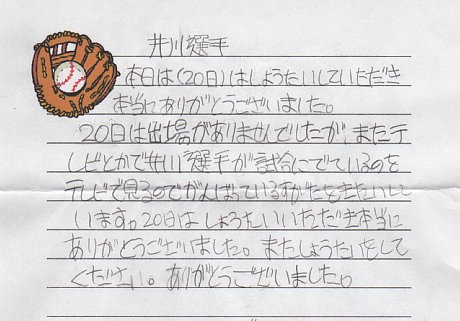 井川選手
本日は(20日)はしょうたいしていただき
本当にありがとうございました。
20日は出場がありませんでしたが、またテ
レビとかで井川選手が試合にでているのを
テレビで見るのでがんばっているすがたをきたいして
います。20日はしょうたいいただき本当に
ありがとうございました。またしょうたいをして
ください。ありがとうございました。